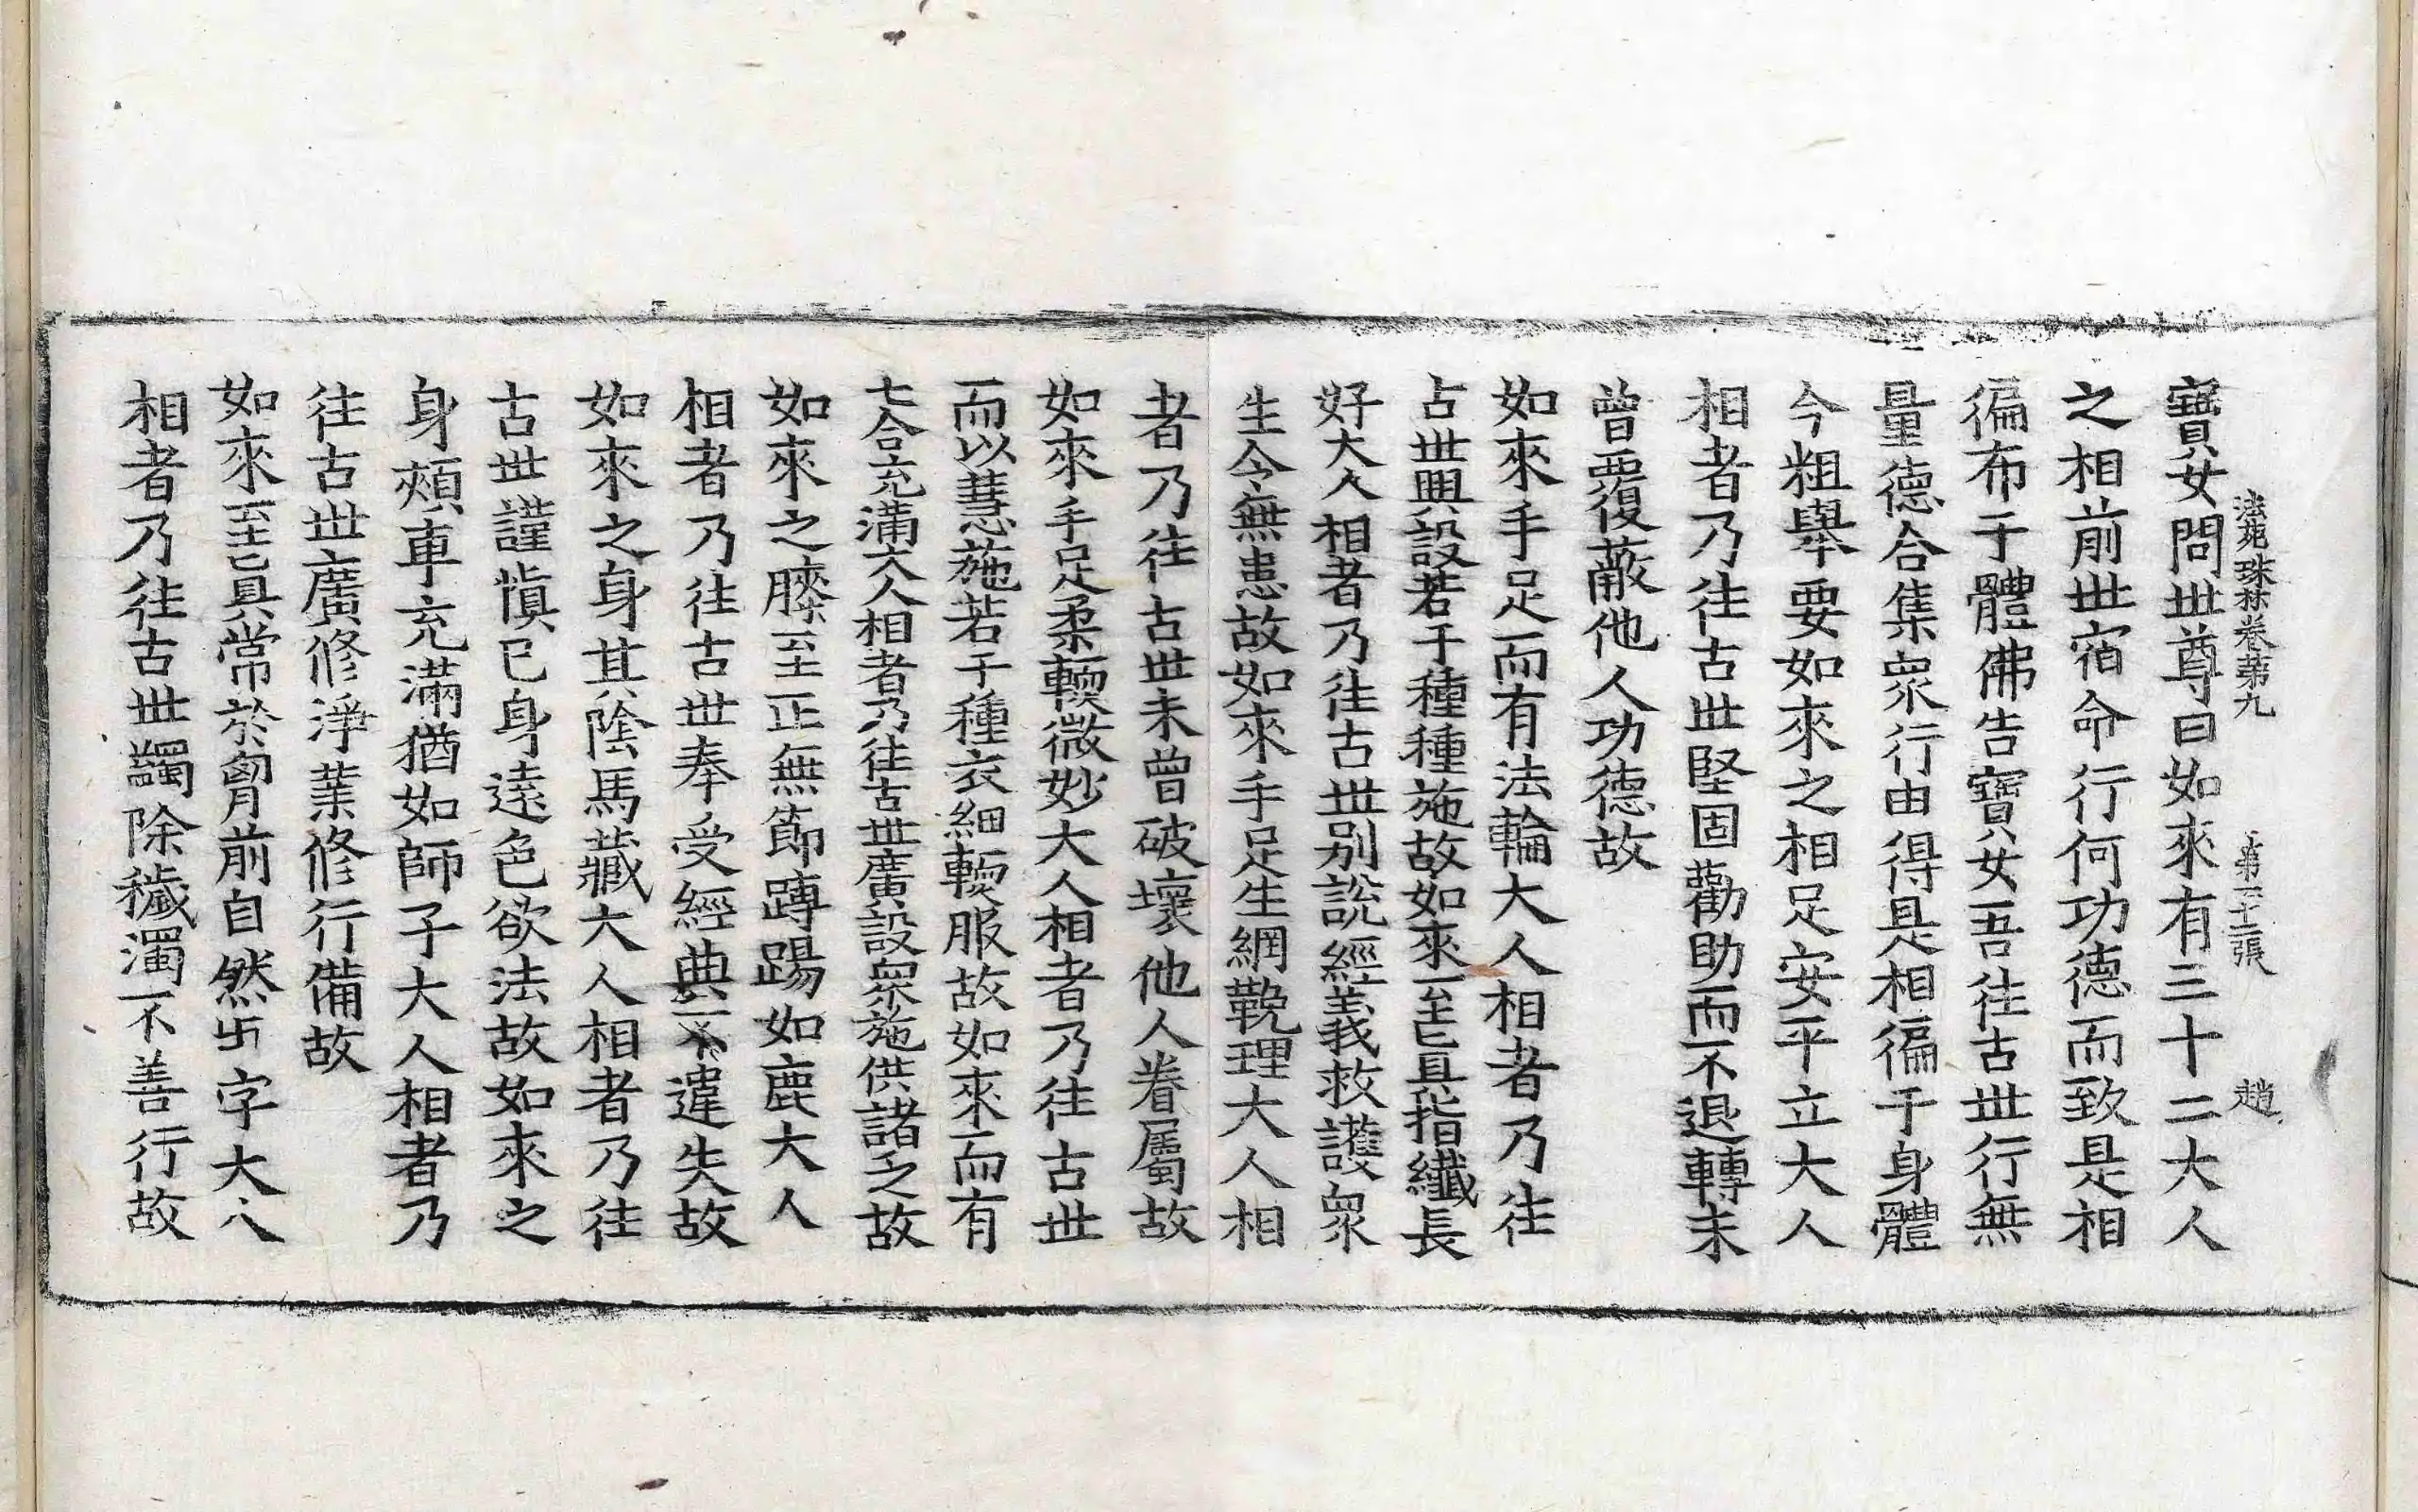 法苑珠林卷第九　第二十二張　趙
寶女問世尊曰如來有三十二大人
之相前世宿命行何功德而致是相
徧布于體佛告寶女吾往古世行無
量德合集眾行由得是相徧于身體
今粗舉要如來之相足安平立大人
相者乃往古世堅固勸助而不退轉未
曾覆蔽他人功德故
如來手足而有法輪大人相者乃往
古世興設若干種種施故如來至已具指纖長
好大人相者乃往古世別說經義救護眾
生令無患故如來手足生網鞔理大人相
者乃往古世未曾破壞他人眷屬故
如來手足柔輭微妙大人相者乃往古世
而以慧施若干種衣細輭服故如來而有
七合充滿大人相者乃往古世廣設眾施供諸乏故
如來之膝至正無節踌踢如鹿大人
相者乃往古世奉受經典不違失故
如來之身其陰馬藏大人相者乃往
古世謹慎己身遠色欲法故如來之
身頰車充滿猶如師子大人相者乃
往古世廣修淨業修行備故
如來至已具常於匈前自然卐字大人
相者乃往古世蠲除穢濁不善行故